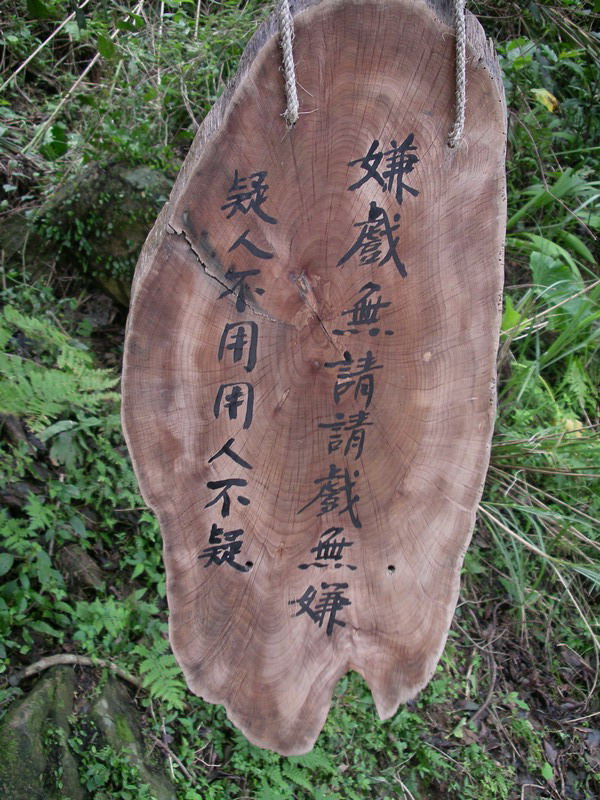 嫌戲無請請戲無嫌
疑人不用用人不疑